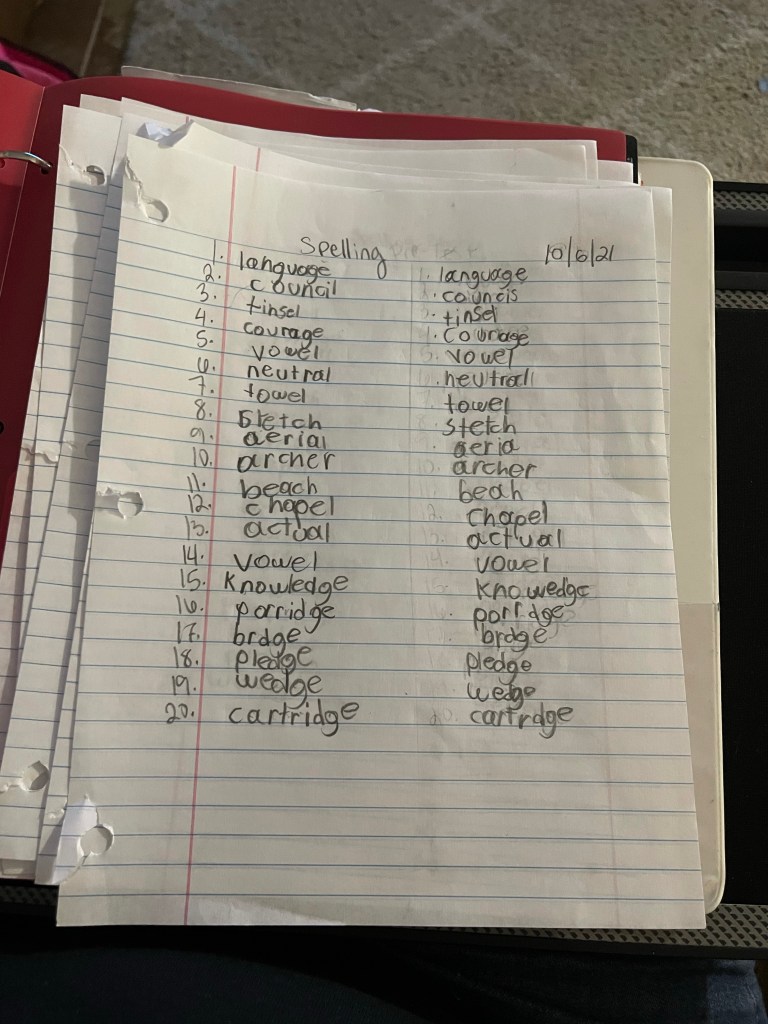 Spelling 10/6/21
1. language 1. language
2. council councis
3. tinsel tinsel
4. courage Couriage
5. vowel vowel
6. neutral neutrall
7. towel towel
8. Stetch stetch
9. aerial aeria
10. archer archer
11. beach beah
12. chapel Chapel
13. actual actual
14. vowel vowel
15. Knowledge Knowedge
16. porridge porrdge
17. brdge brdge
18. pledge pledge
19. wedge wedge
20. cartridge 20. cartrdge